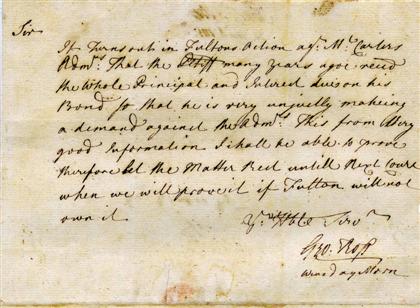 Sir
It Turns out in Fultons Action agt. Mr. Carters
Admrs. That the Pltiff many years agoe recd
the Whole Principal and Interest due on his
Bond so that he is very unjustly makeing
a demand against the Admrs. This from Very
good Information I shall be able to prove
therefore let the Matter Rest untill Next Court
when we will prove it if Fulton will not
own it
Yr. Hble Servt
Geo: Ross
Day Morn